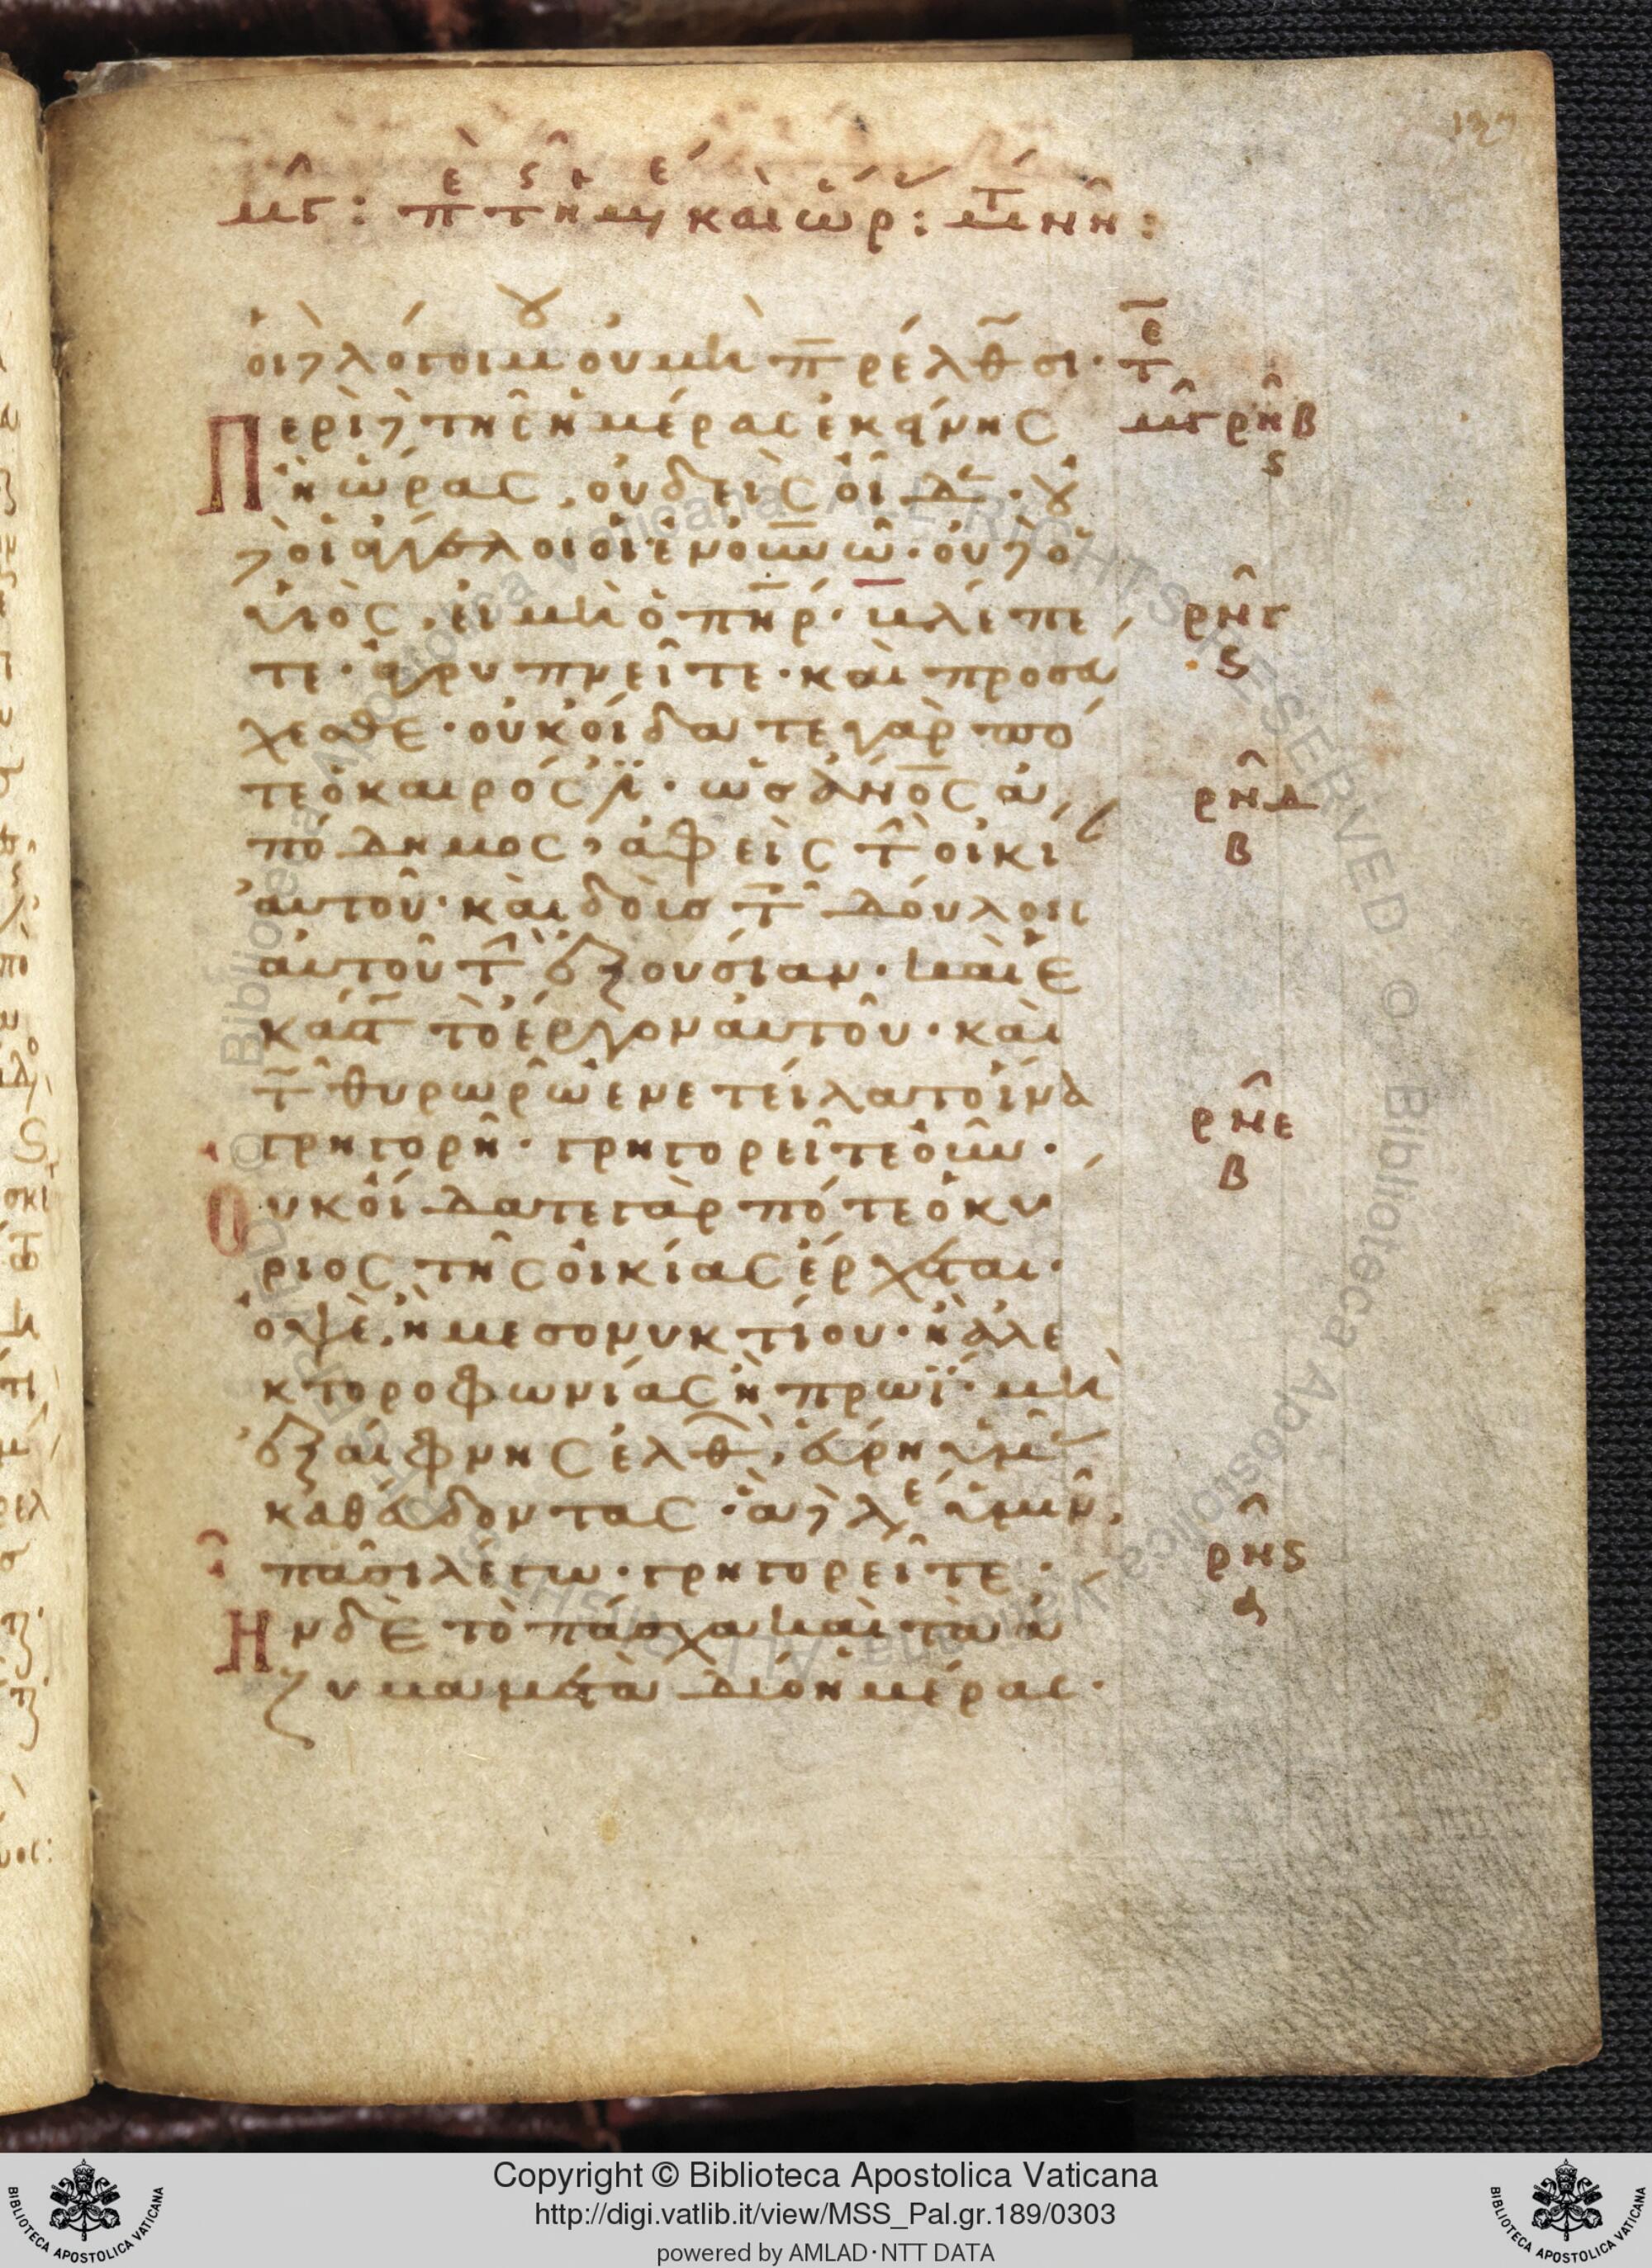 μγ: πε τῆς ἡμέ καὶ ὥρ:
οἱ δὲ λόγοι μου μὴ π̅ρέλθω̅σι· τε
Περὶ δὲ τῆς ἡμέρας ἐκείνης
ἢ ὥρας, οὐδεὶς οἶδεν· οὐ
δὲ οἱ ἄγγελοι οἱ ἐν οὐνῶ· οὐδὲ ὁ
υἱὸς, εἰ μὴ ὁ πη̅ρ· βλέπε
τε· ἀγρυπνεῖτε· καὶ προσεύ
χεσθε· οὐκ οἴδατε γὰρ πό
τε ὁ καιρός ἐστι· ὡς ἄνος ἀ
πόδημος, ἀφεὶς τὴν οἰκί
αὐτοῦ· καὶ δοὺς τοῖς δούλοις
αὐτοῦ τὴν ἐξουσίαν· καὶ ἑ
κάστω τὸ ἔργον αὐτοῦ· καὶ
τῶ θυρωρῶ ἐνετείλατο ἵνα
γρηγορῆ· γρηγορεῖτε οὖν·
Οὐκ οἴδατε γὰρ πότε ὁ κύ
ριος τῆς οἰκίας ἔρχεται·
ὀψὲ, ἢ μεσονυκτίου· ἢ ἀλε
κτοροφωνίας ἢ πρωΐ· μὴ
ἐξαίφνης ἐλθὼν, εὕρη ὑμᾶς
καθεύδοντας· ἃ δὲ λέ ὑμῖν,
πᾶσι λέγω· γρηγορεῖτε·
Ην δὲ τὸ πάσχα καὶ τὰ ἄ
ζυμα μετὰ δύο ἡμέρας·
μγ ρνβ
ς
ρνγ
ς
ρνδ
β
ρνε
β
ρνς
α
Copyright © Biblioteca Apostolica Vaticana
http://digi.vatlib.it/view/MSS_Pal.gr.189/0303
powered by AMLAD·NTT DATA
BIBLIOTECA APOSTOLICA VATICANA
BIBLIOTECA APOSTOLICA VATICANA